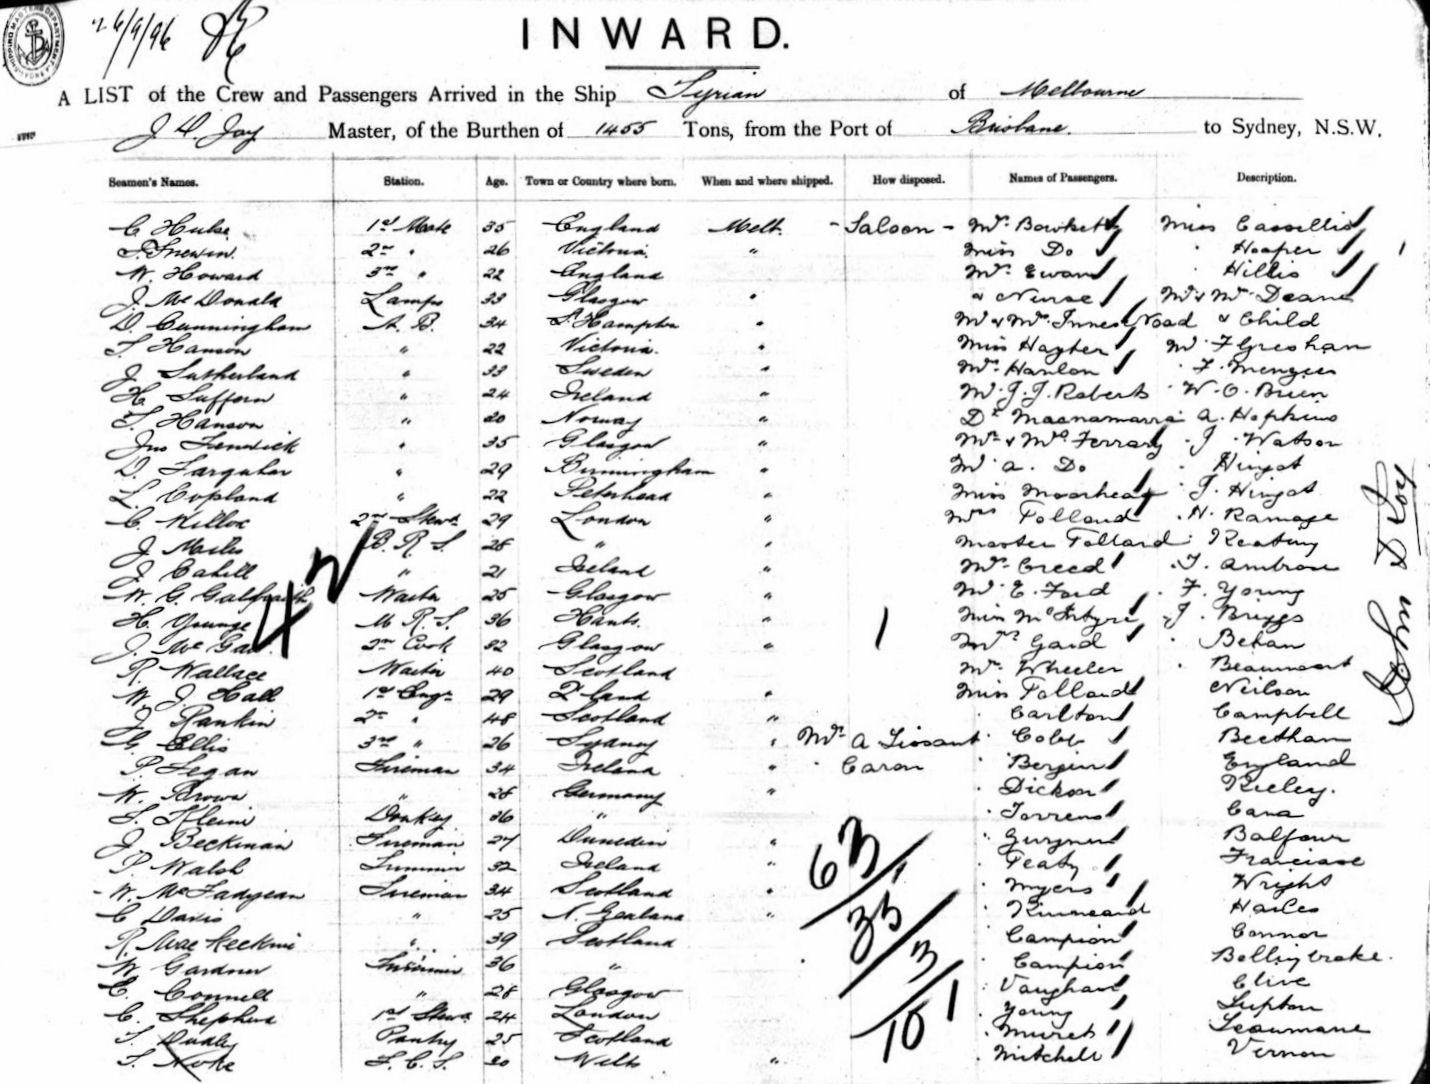 26/9/96
INWARD.
A LIST of the Crew and Passengers Arrived in the Ship Syrian of Melbourne
J D Joy Master, of the Burthen of 1455 Tons, from the Port of Brisbane. to Sydney, N.S.W.
Seamen's Names. Station. Age. Town or Country where born. When and where shipped. How disposed. Names of Passengers. Description.
C Hulse 1st Mate 35 England Melb. - Saloon - Mr. Bowkett Miss Cassellis
2nd " 26 Victoria. " Miss Do " Hooper
W. Howard 3rd " 22 England Mr. Ewan " Hillis
J. McDonald Lamps 33 Glasgow " & Nurse Mr & Mrs Deane
D. Cunningham A. B. 34 S. Hampton " Mr & Mrs. Innes Noad & Child
Hanson " 22 Victoria. " Miss Hayter Mr. F Gresham
J. Sutherland " 33 Sweden " Mr. Hanlon " F. Menzies
H. Suffern " 24 Ireland " Mr. J. J. Roberts " W. O. Brien
Hanson " 20 Norway " Dr Macnamarra A. Hopkins
Jno Fenwick " 35 Glasgow " Mr & Mrs Ferrary " J. Watson
D. Farquhar " 29 Birmingham " Mr A. Do
L. Copland " 22 Peterhead " Miss Moorhead
C. Killoe 2nd Stewd 29 London " Mrs Folland " H. Ramage
J. Miles B. R. S. 28 " " Master Folland " Keating
J. Cahill " 21 Ireland " Mr. Creed " T. Ambrose
W. G. Galbraith Waiter 25 Glasgow " Mr E. Ford " F. Young
H. Younge M. R. S. 36 Hants. " Miss McIntyre " J. Briggs
J. 2nd Cook 32 Glasgow " Mrs Gard " Behan
R. Wallace Waiter 40 Scotland Mr. Wheeler " Beaumont
W. J. Hall 1st Engr 29 Q'land " Miss Folland Neilson
J. Rankin 2nd " 48 Scotland " Carlton Campbell
G. Ellis 3rd " 26 Sydney " Mr. A Tissaut " Cobb Beetham
P. Fegan Fireman 34 Ireland " " Caron " Bergin England
W. Brown " 28 Germany " " Dickson Kieley.
Kleim Donkey 36 " " Torrens Cana
J. Beckman Fireman 27 Dunedin " Balfour
P. Walsh Trimmer 32 Ireland " " Peaty Franciase
W. McFadyean Fireman 34 Scotland " " Myers Wright
C Davis " 25 N. Zealand " " Kinneard
R. MacKecknie " 39 Scotland " Campion Connor
W Gardner 36 " " Campion Bollingbroke.
C. Connell " 28 Glasgow " Vaughan Clive
C. Shepherd 1st Stewd 24 London " Young Lupton
Dudley Pantry 25 Scotland
Noke F. C. S. 30 Wilts " " Mitchell Vernon
42
1
63
1
35
3
101
John D Joy